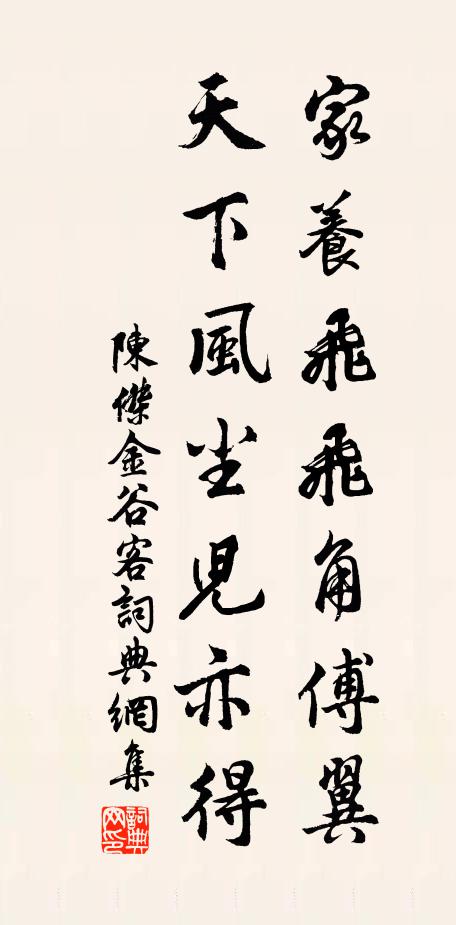 家養飛飛角傅翼
天下風尘児亦得
陳傑金谷客詞典網集
詞典网印